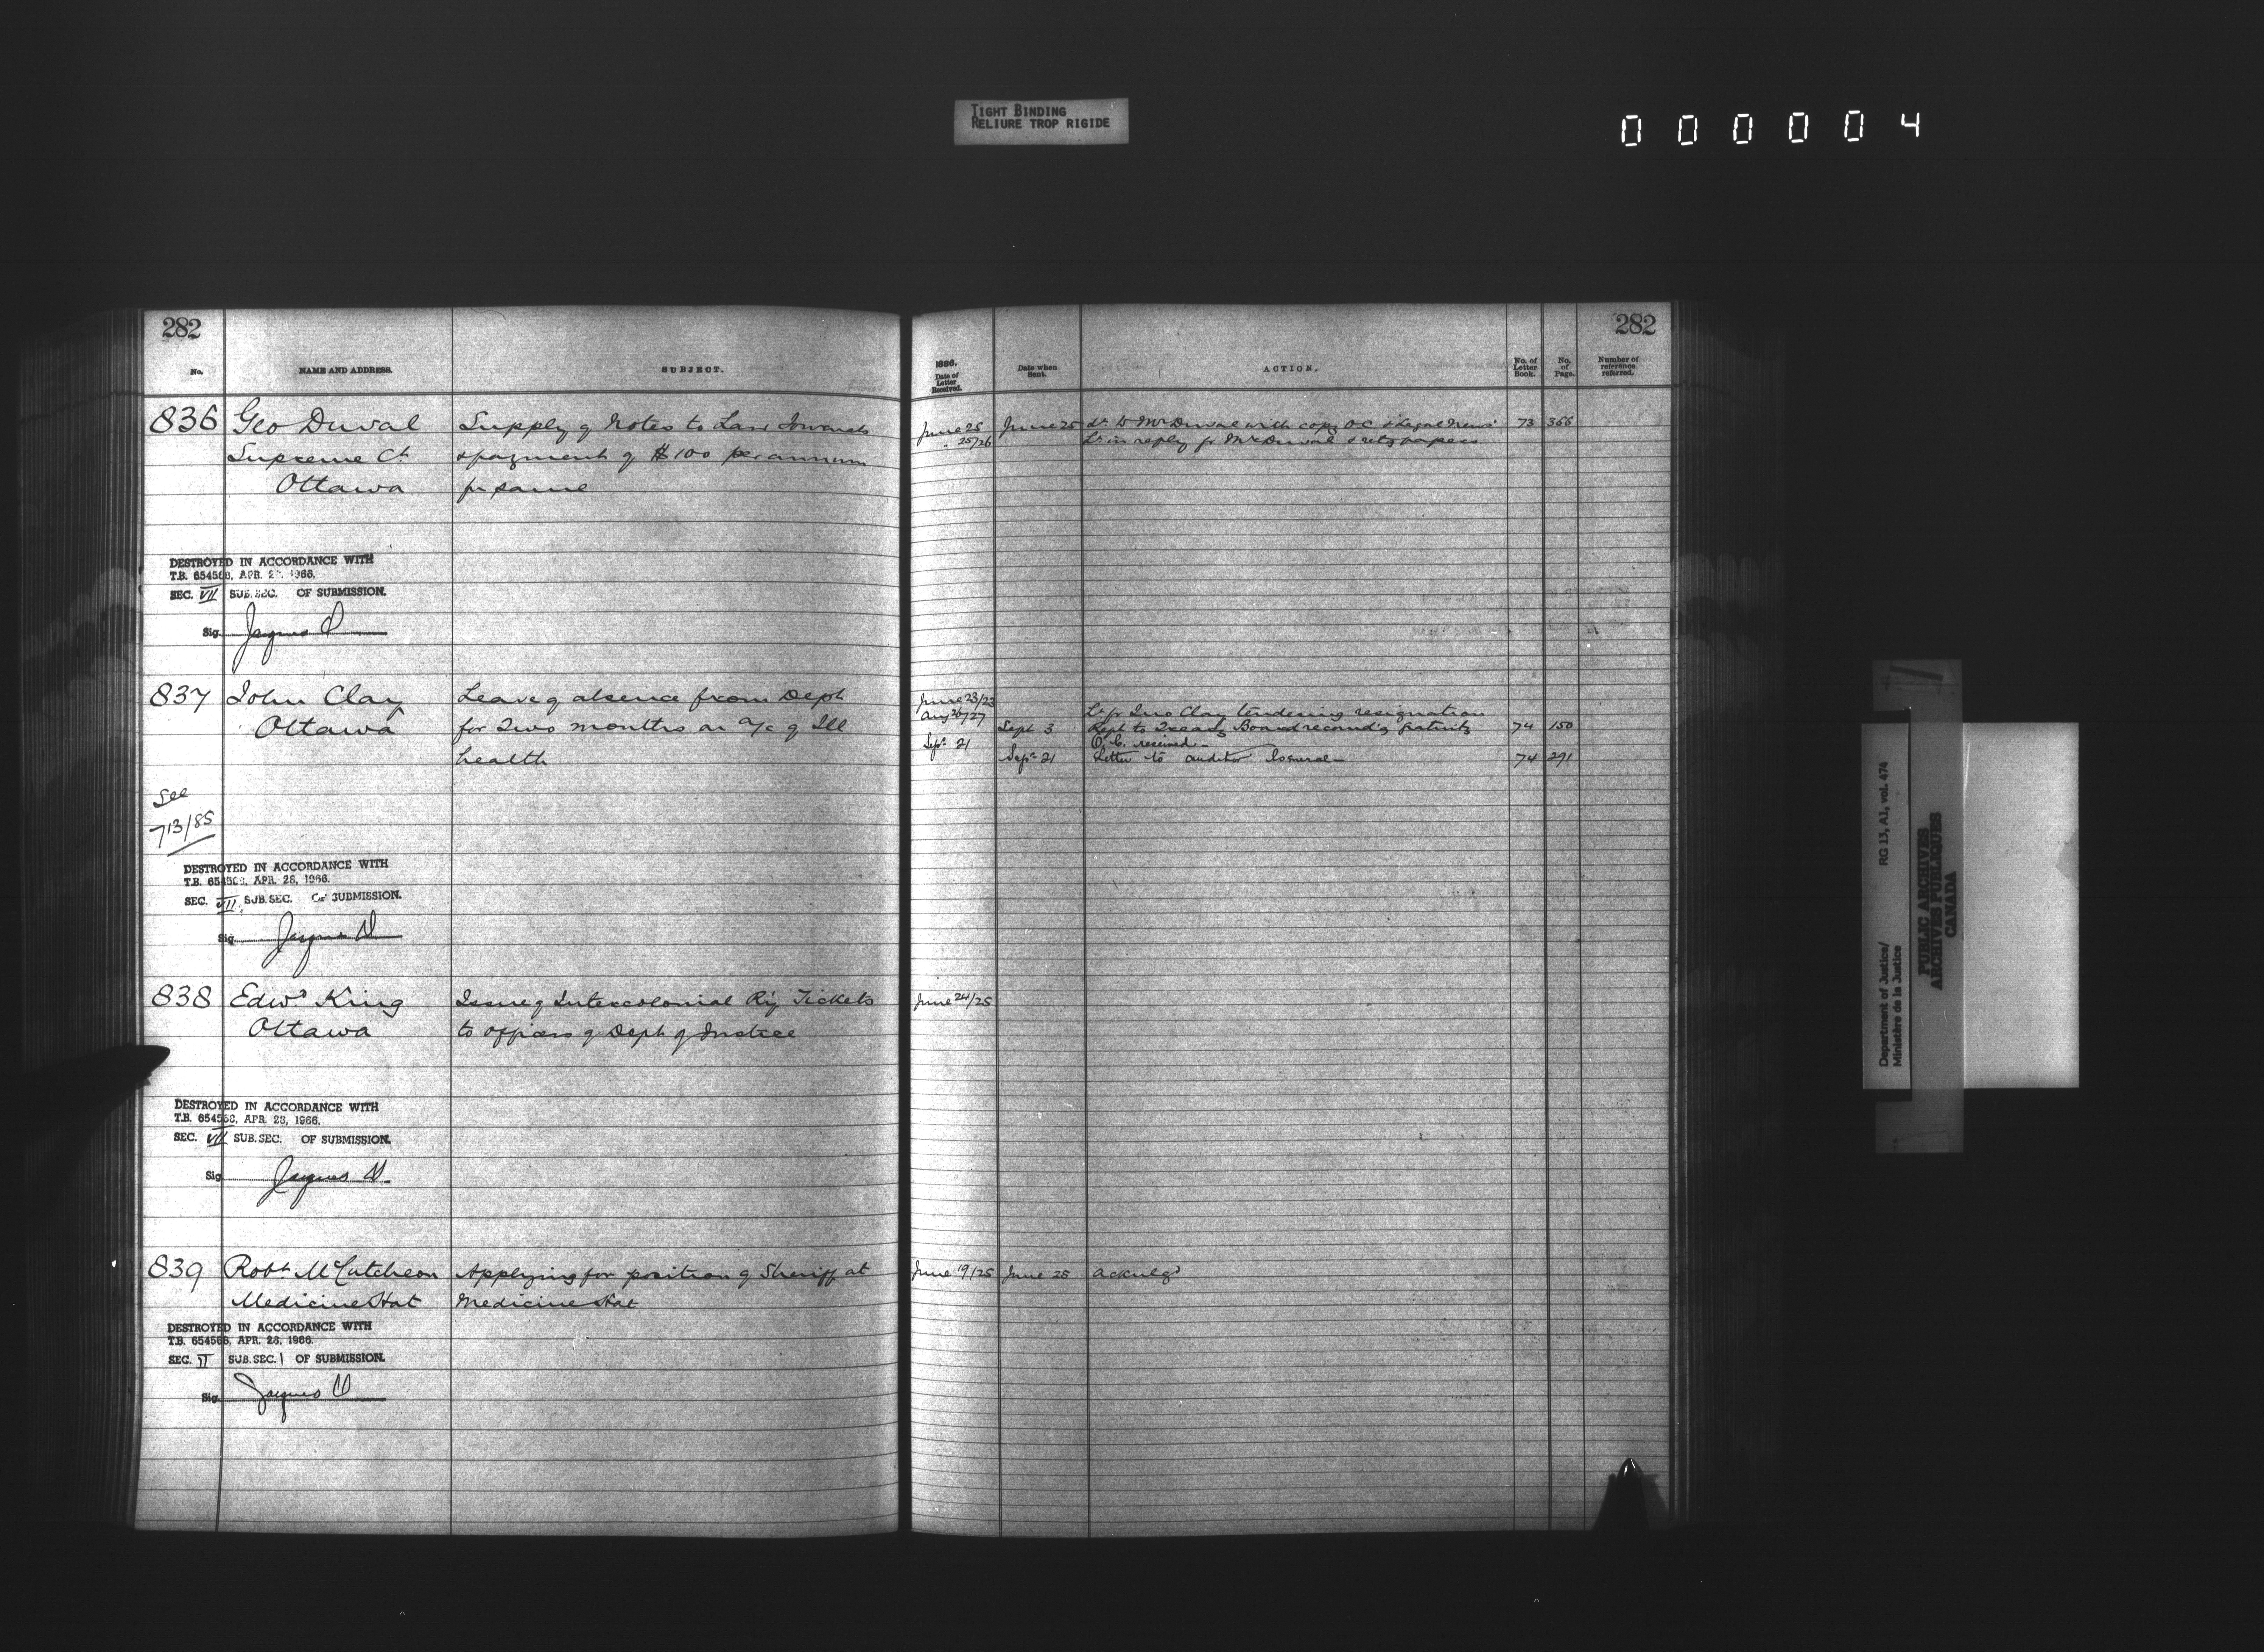 TIGHT BINDING
RELIURE TROP RIGIDE
000004
282
No. NAME AND ADDRESS. SUBJECT.
836 Geo Duval Supply of Notes to Law Journals
Supreme Ct & payment of $100 per annum
Ottawa for same
DESTROYED IN ACCORDANCE WITH
T.B. 654568, APR. 28, 1966.
SEC. VII SUB. SEC. OF SUBMISSION.
Sig. Jacques D
837 John Clay Leave of absence from Dept
Ottawa for Two months on a/c of Ill
health
See
713/85
DESTROYED IN ACCORDANCE WITH
T.B. 654568, APR. 28, 1966.
SEC. VII SUB. SEC. OF SUBMISSION.
Sig. Jacques D
838 Edwd King Issue of Intercolonial Ry Tickets
Ottawa to officers of Dept of Justice
DESTROYED IN ACCORDANCE WITH
T.B. 654568, APR. 28, 1966.
SEC. VII SUB. SEC. OF SUBMISSION.
Sig. Jacques D
839 Robt McCutcheon Applying for position of Sheriff at
Medicine Hat Medicine Hat
DESTROYED IN ACCORDANCE WITH
T.B. 654568, APR. 28, 1966.
SEC. II SUB. SEC. 1 OF SUBMISSION.
Sig. Jacques D
282
1886. Date of Letter Received. Date when Sent. ACTION. No. of Letter Book. No. of Page. Number of reference referred.
June 25 June 25 Lr to Mr Duval with copy OC & Legal News 73 366
" 25/26 Lr in reply fr Mr Duval & retg papers
June 23/23
Aug 26/27 Lr fr Jno Clay tendering resignation
Sept 3 Rept to Treasy Board recomdg gratuity 74 150
Sept 21 O.C. received
Sept 21 Letter to Auditor General 74 291
June 24/25
June 19/25 June 28 Acknlgd
Department of Justice/ RG 13, A1, vol. 474
Ministère de la Justice
PUBLIC ARCHIVES
ARCHIVES PUBLIQUES
CANADA